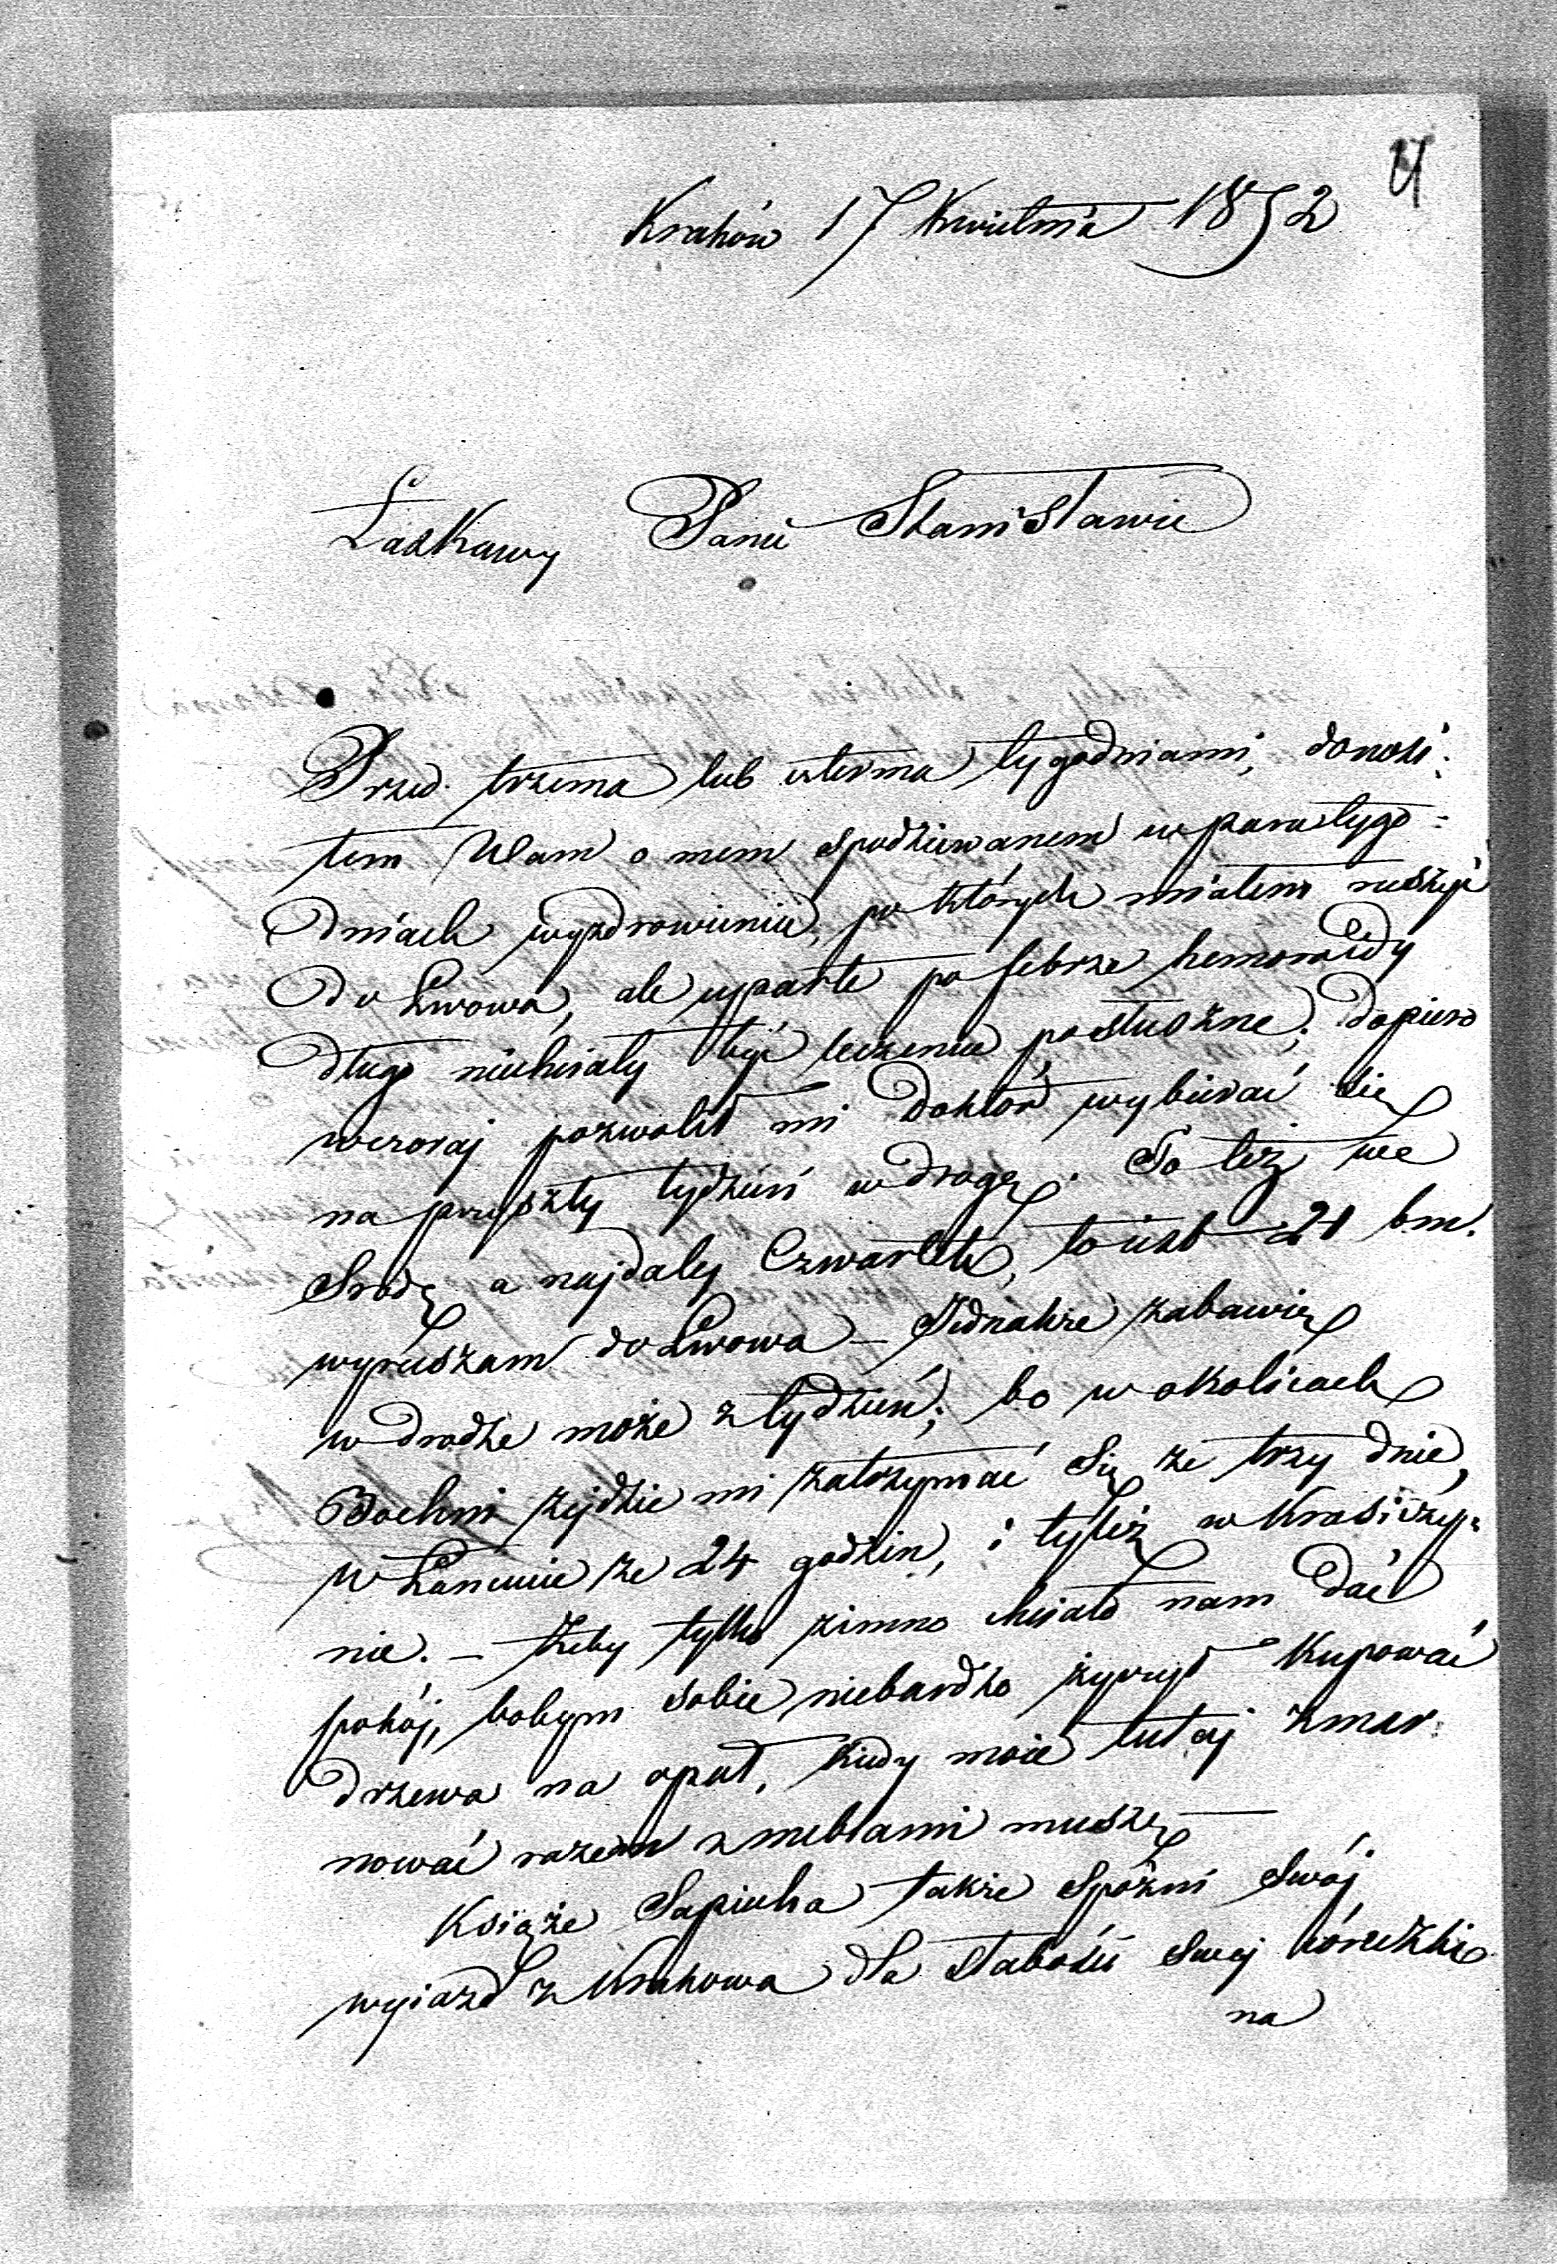 21
Kraków 17 Kwietnia 1852
Łaskawy Panie Stanisławie
Przed trzema lub czterma tygodniami, donosi:
łem Wam o mem spodziewanem w para tygo=
dniach wyzdrowieniu, po których miałem ruszyć
do Lwowa, ale uparte po febrze hemoroidy
długo niechciały być leczeniu posłuszne; dopiero
wczoraj pozwolił mi doktor wybierać się
na przyszły tydzień w drogę. To też we
Srodę a najdaley Czwartek, to iest 21 bm.
wyruszam do Lwowa – Jednakże zabawię
w drodze może z tydzień; bo w okolicach
Bochni zejdzie mi zatrzymać się ze trzy dnie,
w Łancucie ze 24 godzin, i tyleż w Krasiczy=
nie. – Żeby tylko zimno chciało nam dać
pokój, bobym sobie niebardzo życzył kupować
drzewa na opał, kiedy moie tutaj zmar:
nować razem z meblami muszę –
Książe Sapieha także spóźni swój
wyiazd z Krakowa dla słabości swej córeczki
na